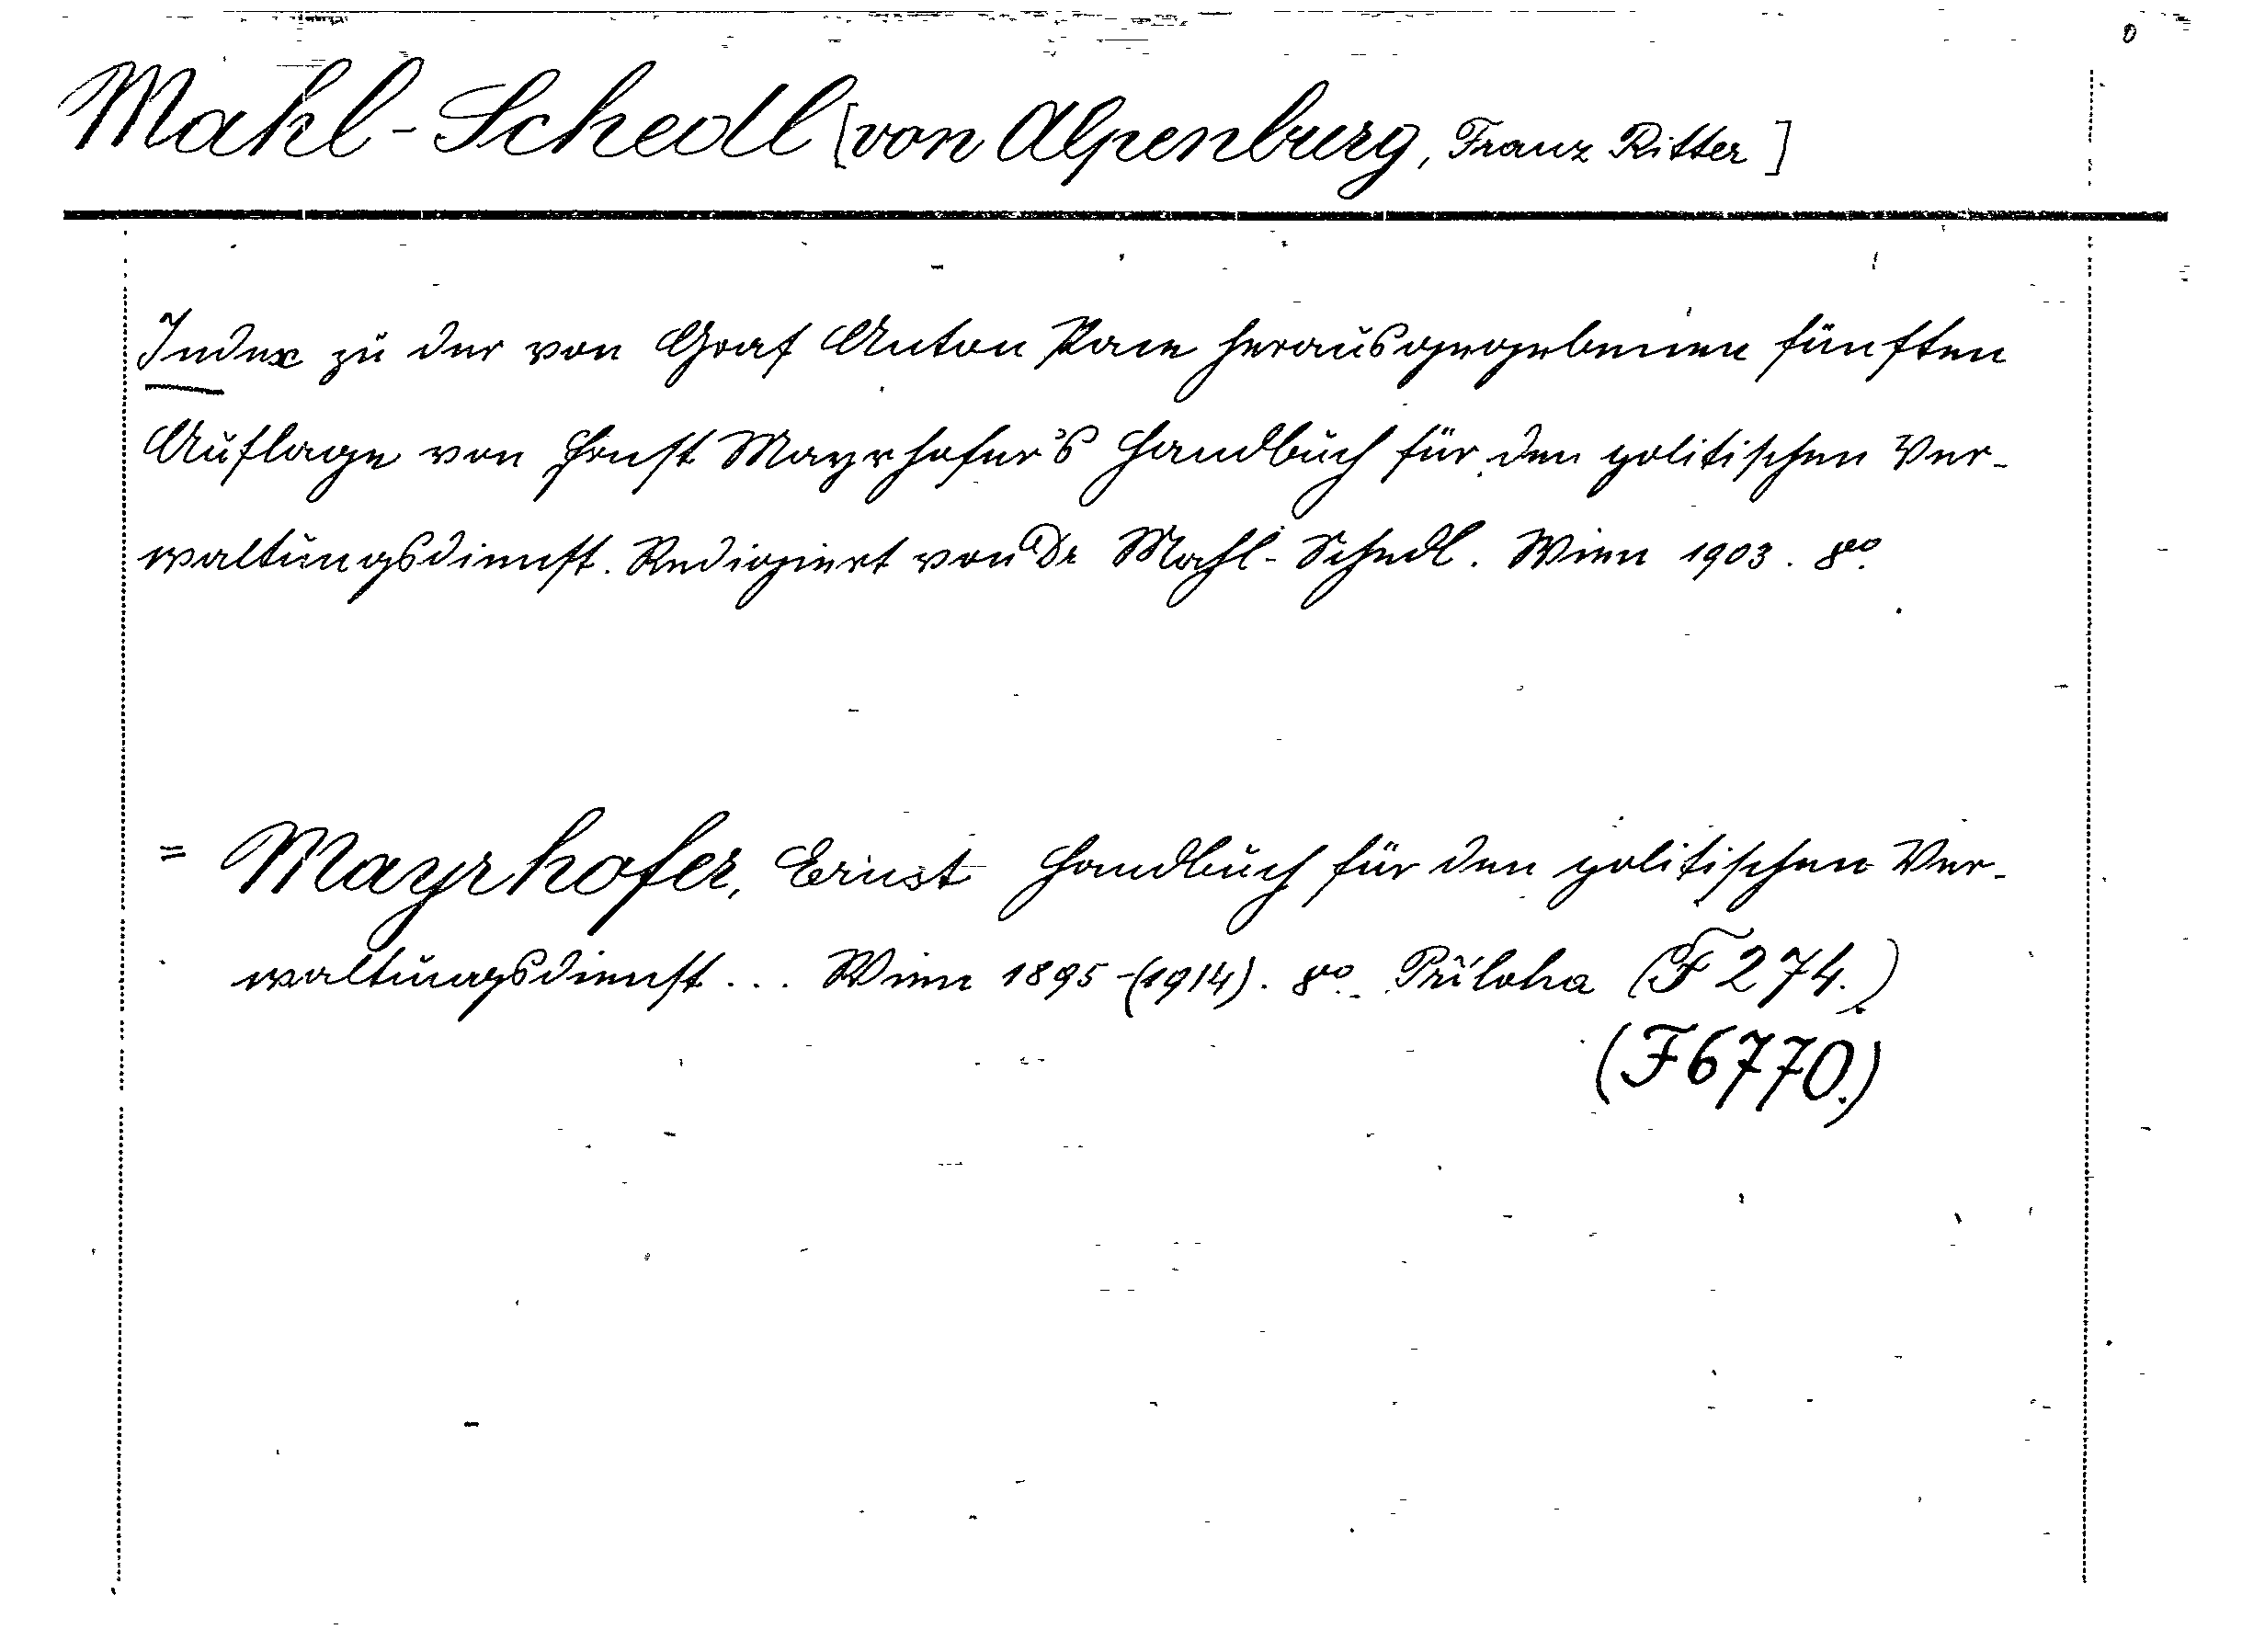 Mahl-Schedl [von Alpenburg, Franz Ritter]
Index zu der von Graf Anton Pace herausgegebenen fünften
Auflage von Ernst Mayrhofer's Handbuch für den politischen Ver-
waltungsdienst. Redigiert von Dr Mahl-Schedl. Wien 1903. 8vo.
= Mayrhofer, Ernst Handbuch für den politischen Ver-
waltungsdienst... Wien 1895-(1914). 8vo. Příloha (F 274.)
(F 6770.)